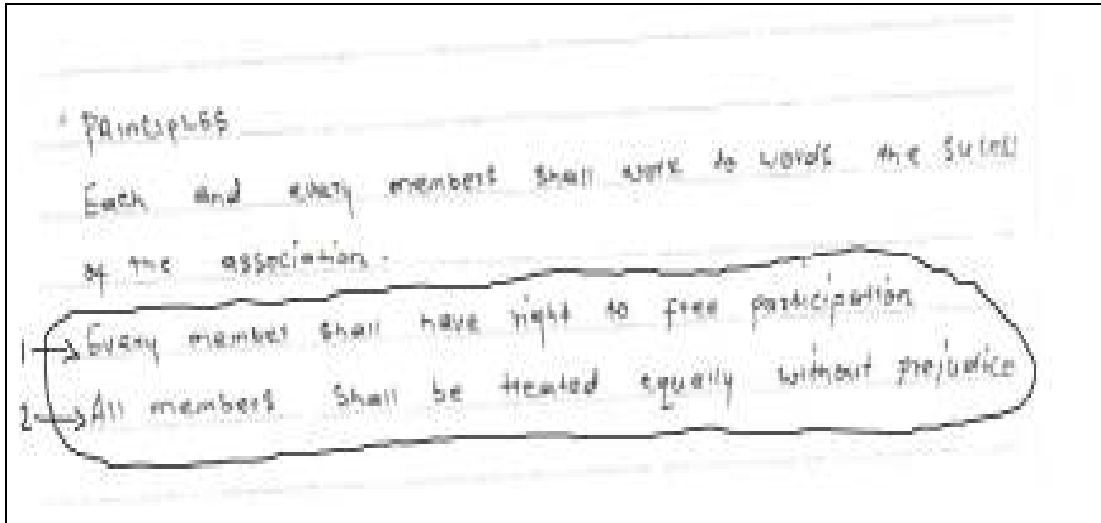 PRINCIPLES
Each and every members shall work to words the
of the association.
1 → Every member shall have right to free participation
2 → All members shall be treated equally without prejudice